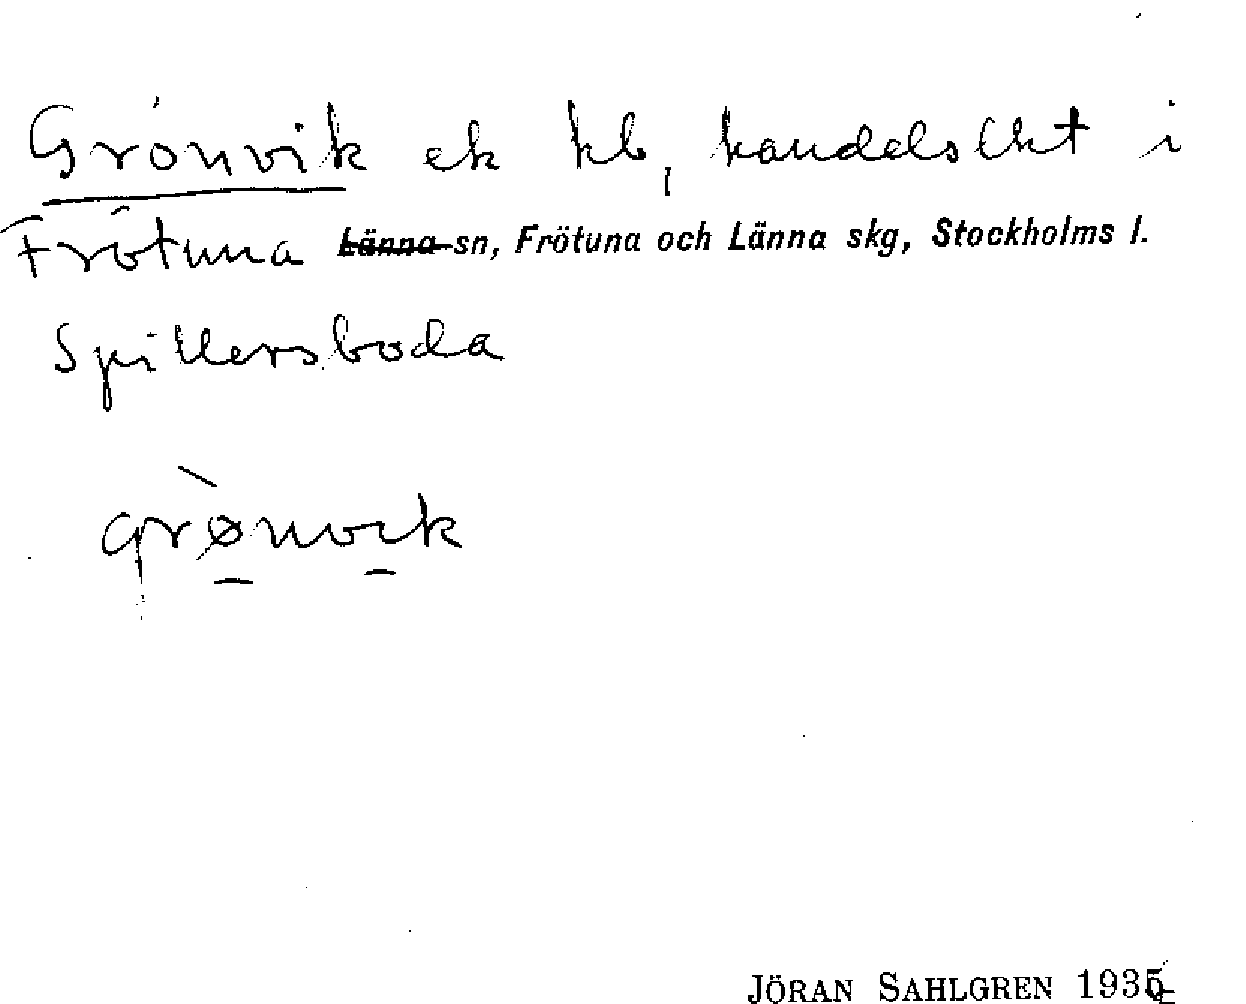 Grönvik ek kb, handelslkt i
Frötuna Länna sn, Frötuna och Länna skg, Stockholms l.
Spillersboda
grø̀nvik
JÖRAN SAHLGREN 1935